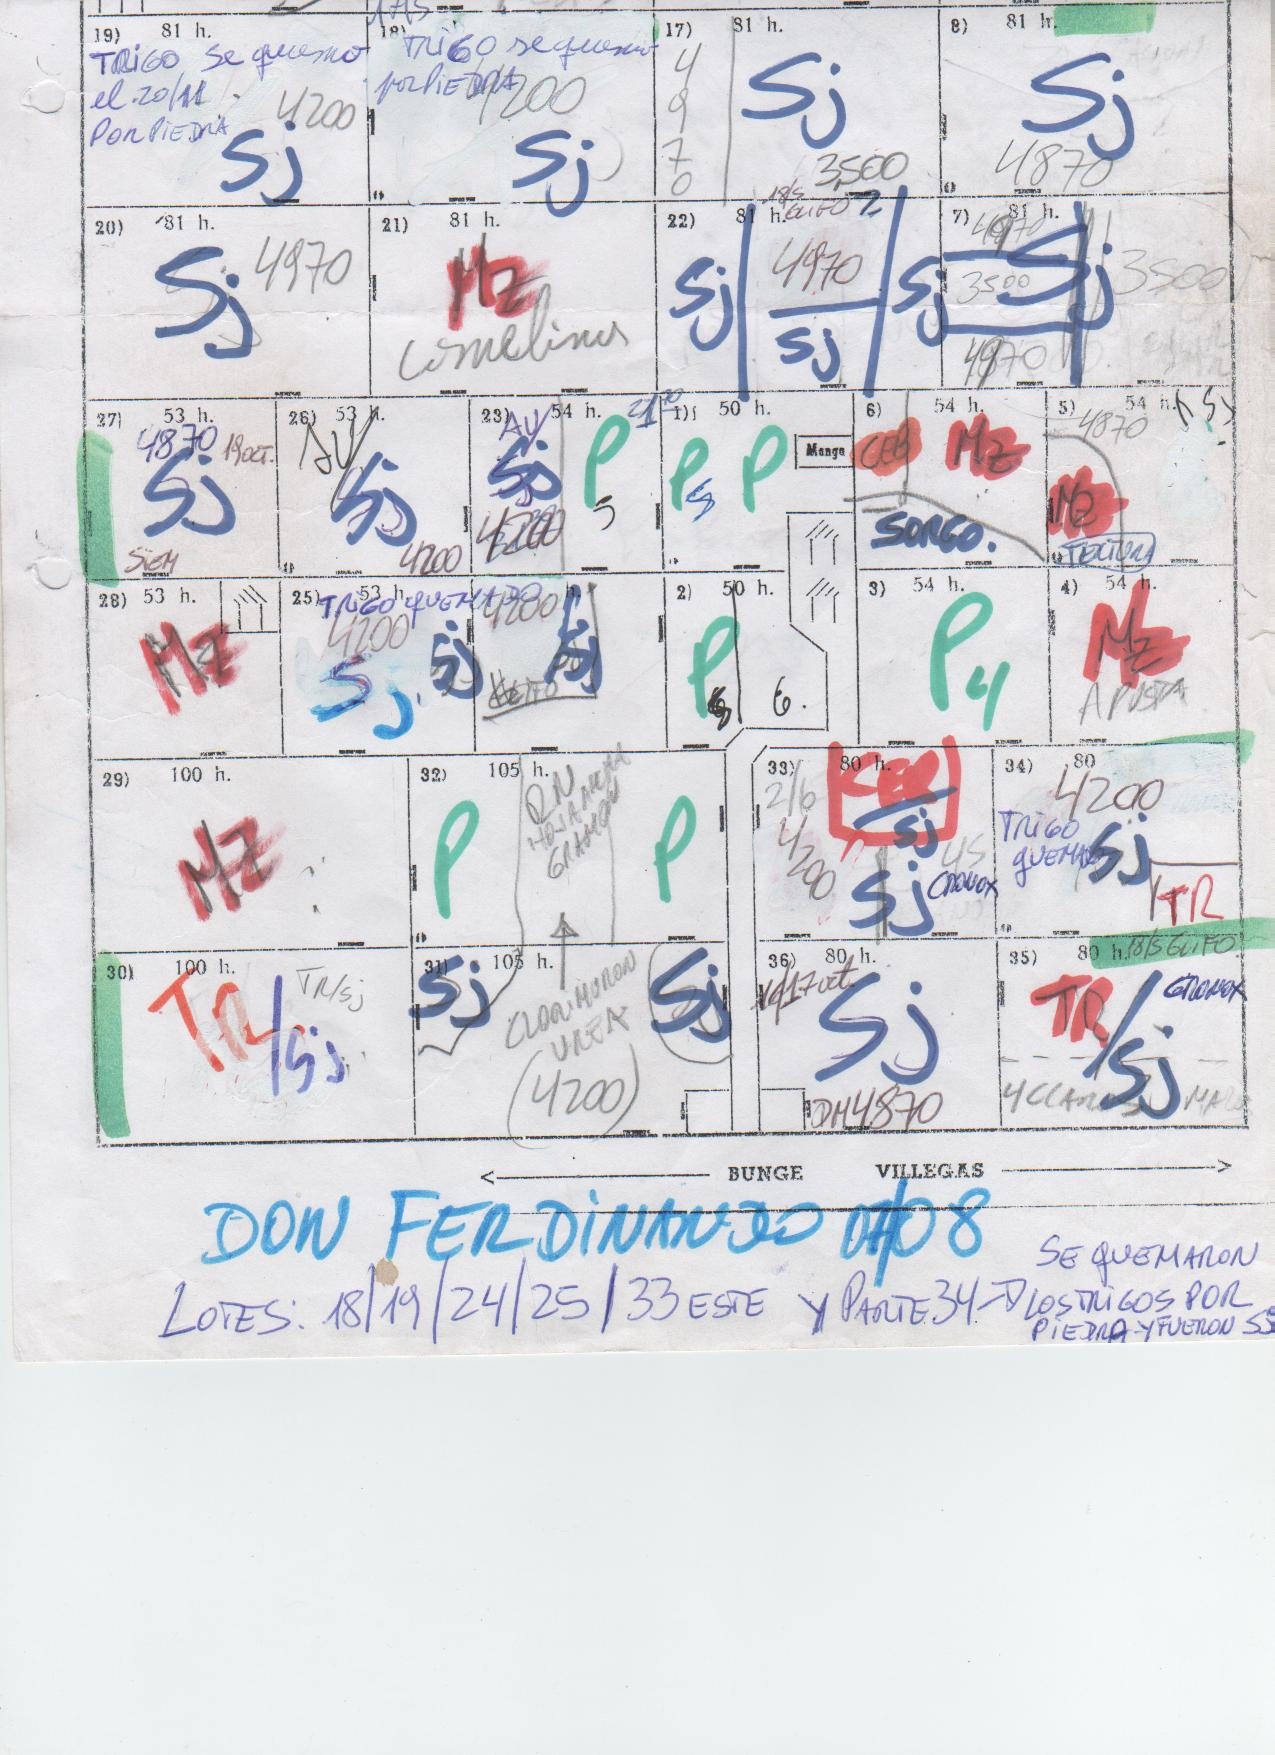 19) 81 h.
TRIGO se quemo
el 20/11
POR PIEDRA
4200
Sj
18)
TRIGO se quemo
por PIEDRA
4200
Sj
17) 81 h.
4970
Sj
3500
8) 81 h.
Sj
4870
20) 81 h.
Sj
4970
21) 81 h.
Mz
22) 81 h.
18/5
GLIFO 2
Sj
4970
Sj
7) 81 h.
4970
Sj
Sj
3500
3500
4970
27) 53 h.
4870
19 OCT.
Sj
SIEM
26) 53 h.
AV
Sj
4200
23) 54 h.
AV
Sj
4200
P
5
1) 50 h.
P
P
5
Manga
6) 54 h.
CEB
Mz
SORGO.
5) 54 h.
4870
Sj
Mz
28) 53 h.
Mz
25) 53 h.
TRIGO QUEMADO
4200
Sj
Sj
4200
Sj
2) 50 h.
P
6.
3) 54 h.
P4
4) 54 h.
Mz
29) 100 h.
Mz
32) 105 h.
P
P
33) 80 h.
2/6
4200
Sj
Sj
34) 80
4200
TRIGO
QUEMADO
Sj
TR
30) 100 h.
TR/Sj
TR/Sj
31) 105 h.
Sj
Sj
UREA
(4200)
36) 80 h.
17 oct.
Sj
DM4870
35) 80 h.
18/5 GLIFO
TR/Sj
BUNGE VILLEGAS
DON FERDINANDO 07/08
LOTES: 18/19/24/25/33 ESTE Y PARTE 34
SE QUEMARON
LOS TRIGOS POR
PIEDRA Y FUERON SJ